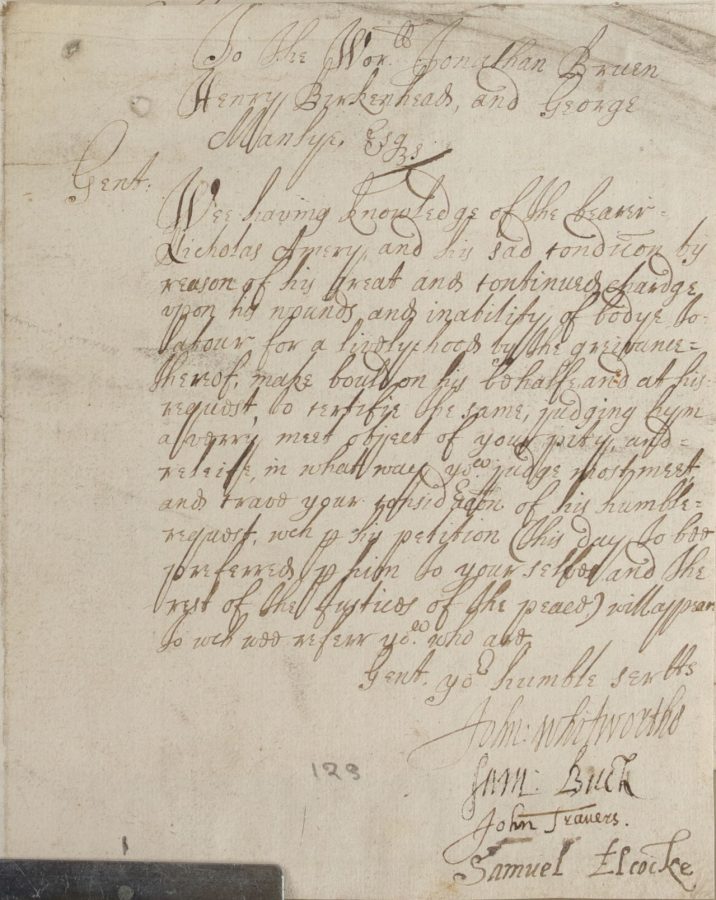 To the Wor:ll Jonathan Bruen
Henry Birkenhead, and George
Manlye, Esqrs
Gent:
Wee having knowledge of the bearer
Nicholas Amery, and his sad condicon by
reason of his great and continued chardge
upon his wounds, and inability of bodye to
labour for a livelychood by the greivance
thereof, make bould on his behalfe, and at his
request, to certifie the same, judging hym
a verry meet object of your pitty, and
releife, in what way yow judge most meet,
and crave your consideracon of his humble
request, wch p his petition (this day to bee
preferred p him to your selves and the
rest of the Justices of the peace) will appear
to wch wee referr yow. who are
Gent. yor humble servts
John: Whitworthe
Sam: Buck
John Travers.
Samuel Elcocke
129